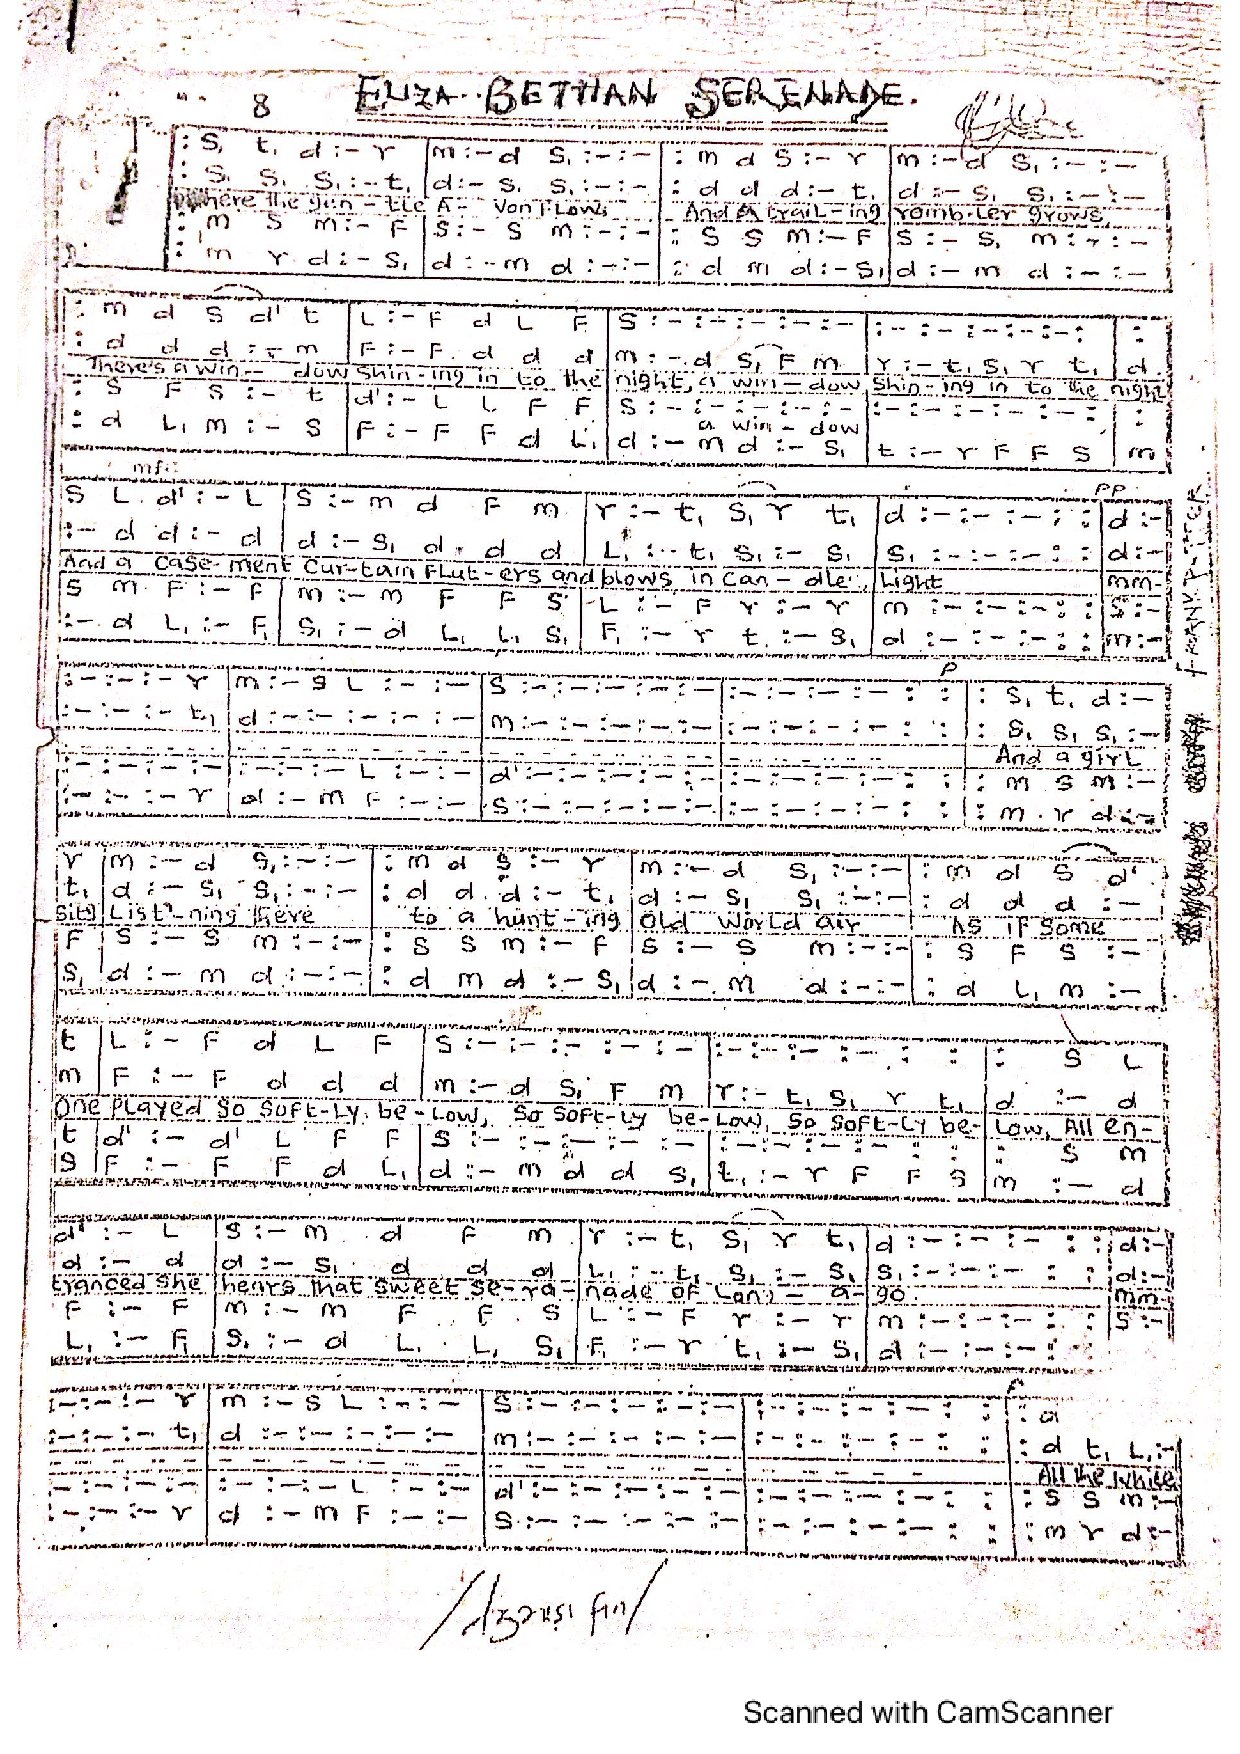 8 ELIZA BETHAN SERENADE.
: S, t, d :- r | m :- d S, :- :- | : m d S :- r | m :- d S, :- :-
: S, S, S, :- t, | d :- S, S, :- :- | : d d d :- t, | d :- S, S, :- :-
Where the gen - tle A - von Flows And a trail - ing romb - ler grows
: m S m :- F | S :- S m :- :- | : S S m :- F | S :- S, m :- :-
: m r d :- S, | d :- m d :- :- | : d m d :- S, | d :- m d :- :-
: m d S d' t | L :- F d L F | S :- :- :- :- :- | :- :- :- :- :- : | :
: d d d :- m | F :- F d d d | m :- d S, F m | r :- t, S, r t, | d
There's a win - dow Shin - ing in to the night, a win - dow Shin - ing in to the night
: S F S :- t | d' :- L L F F | S :- :- :- :- :- | :- :- :- :- : : | :
a win - dow
: d L, m :- S | F :- F F d L, | d :- m d :- S, | t :- r F F S | m
mf
pp
S L d' :- L | S :- m d F m | r :- t, S, r t, | d :- :- :- : : | d :-
:- d d :- d | d :- S, d d d | L, :- t, S, :- S, | S, :- :- :- : : | d :-
And a case - ment Cur - tain Flut - ers and blows in Can - dle Light mm-
S m F :- F | m :- m F F S | L :- F r :- r | m :- :- :- : : | S :-
:- d L, :- F, | S, :- d L, L, S, | F, :- r t, :- S, | d :- :- :- : : | m :-
P
:- :- :- r | m :- S L :- :- | S :- :- :- :- :- | :- :- :- :- : : | : S, t, d :-
:- :- :- t, | d :- :- :- :- :- | m :- :- :- :- :- | :- :- :- :- : : | : S, S, S, :-
And a girl
:- :- :- :- | :- :- :- L :- :- | d' :- :- :- :- :- | :- :- :- :- : : | : m S m :-
:- :- :- r | d :- m F :- :- | S :- :- :- :- :- | :- :- :- :- : : | : m r d :-
r | m :- d S, :- :- | : m d S :- r | m :- d S, :- :- | : m d S d'
t, | d :- S, S, :- :- | : d d d :- t, | d :- S, S, :- :- | : d d d :-
Sits List'-ning there to a hunt - ing old World air AS if some
F | S :- S m :- :- | : S S m :- F | S :- S m :- :- | : S F S :-
S, | d :- m d :- :- | : d m d :- S, | d :- m d :- :- | : d L, m :-
t | L :- F d L F | S :- :- :- :- :- | :- :- :- :- : : | : S L
m | F :- F d d d | m :- d S, F m | r :- t, S, r t, | d :- d
One Played So Soft-Ly be - Low, So Soft-Ly be-Low, So Soft-Ly be- Low, All en-
t | d' :- d' L F F | S :- :- :- :- :- | :- :- :- :- : : | : S m
S | F :- F F d L, | d :- m d d S, | t, :- r F F S | m :- d
d' :- L | S :- m d F m | r :- t, S, r t, | d :- :- :- : : | d :-
d :- d | d :- S, d d d | L, :- t, S, :- S, | S, :- :- :- : : | d :-
tranced She hears that Sweet Se-ra- nade of Long - a- go mm-
F :- F | m :- m F F S | L :- F r :- r | m :- :- :- : : | S :-
L, :- F, | S, :- d L, L, S, | F, :- r t, :- S, | d :- :- :- : :
:- :- :- r | m :- S L :- :- | S :- :- :- :- :- | :- :- :- :- : : | : d
:- :- :- t, | d :- :- :- :- :- | m :- :- :- :- :- | :- :- :- :- : : | : d t, L, :-
All the while
:- :- :- :- | :- :- :- L :- :- | d' :- :- :- :- :- | :- :- :- :- : : | : S S m :-
:- :- :- r | d :- m F :- :- | S :- :- :- :- :- | :- :- :- :- : : | : m r d :-
Scanned with CamScanner